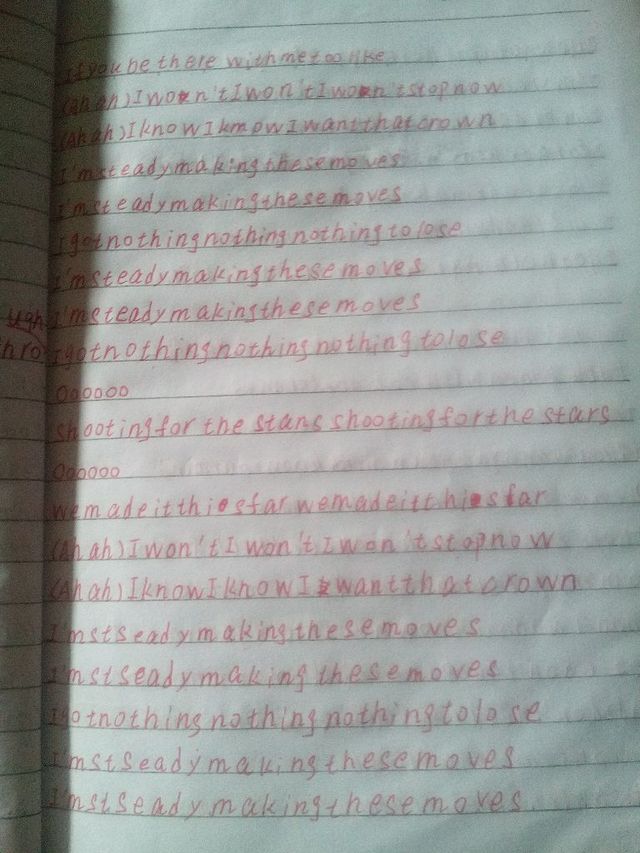 If you be there with me too like
(Ah ah) I won't I won't I won't stop now
(Ah ah) I know I kmow I want that crown
I'm steady making these moves
I'm steady making these moves
I got nothing nothing nothing to lose
I'm steady making these moves
ugh I'm steady making these moves
hro I got nothing nothing nothing to lose
Oooooo
shooting for the stans shooting for the stars
Oooooo
we made it this far we made it this far
(Ah ah) I won't I won't I won't stop now
(Ah ah) I know I know I want that crown
I'm stseady making these moves
I'm stseady making these moves
I got nothing nothing nothing to lose
I'm stseady making these moves
I'm stseady making these moves